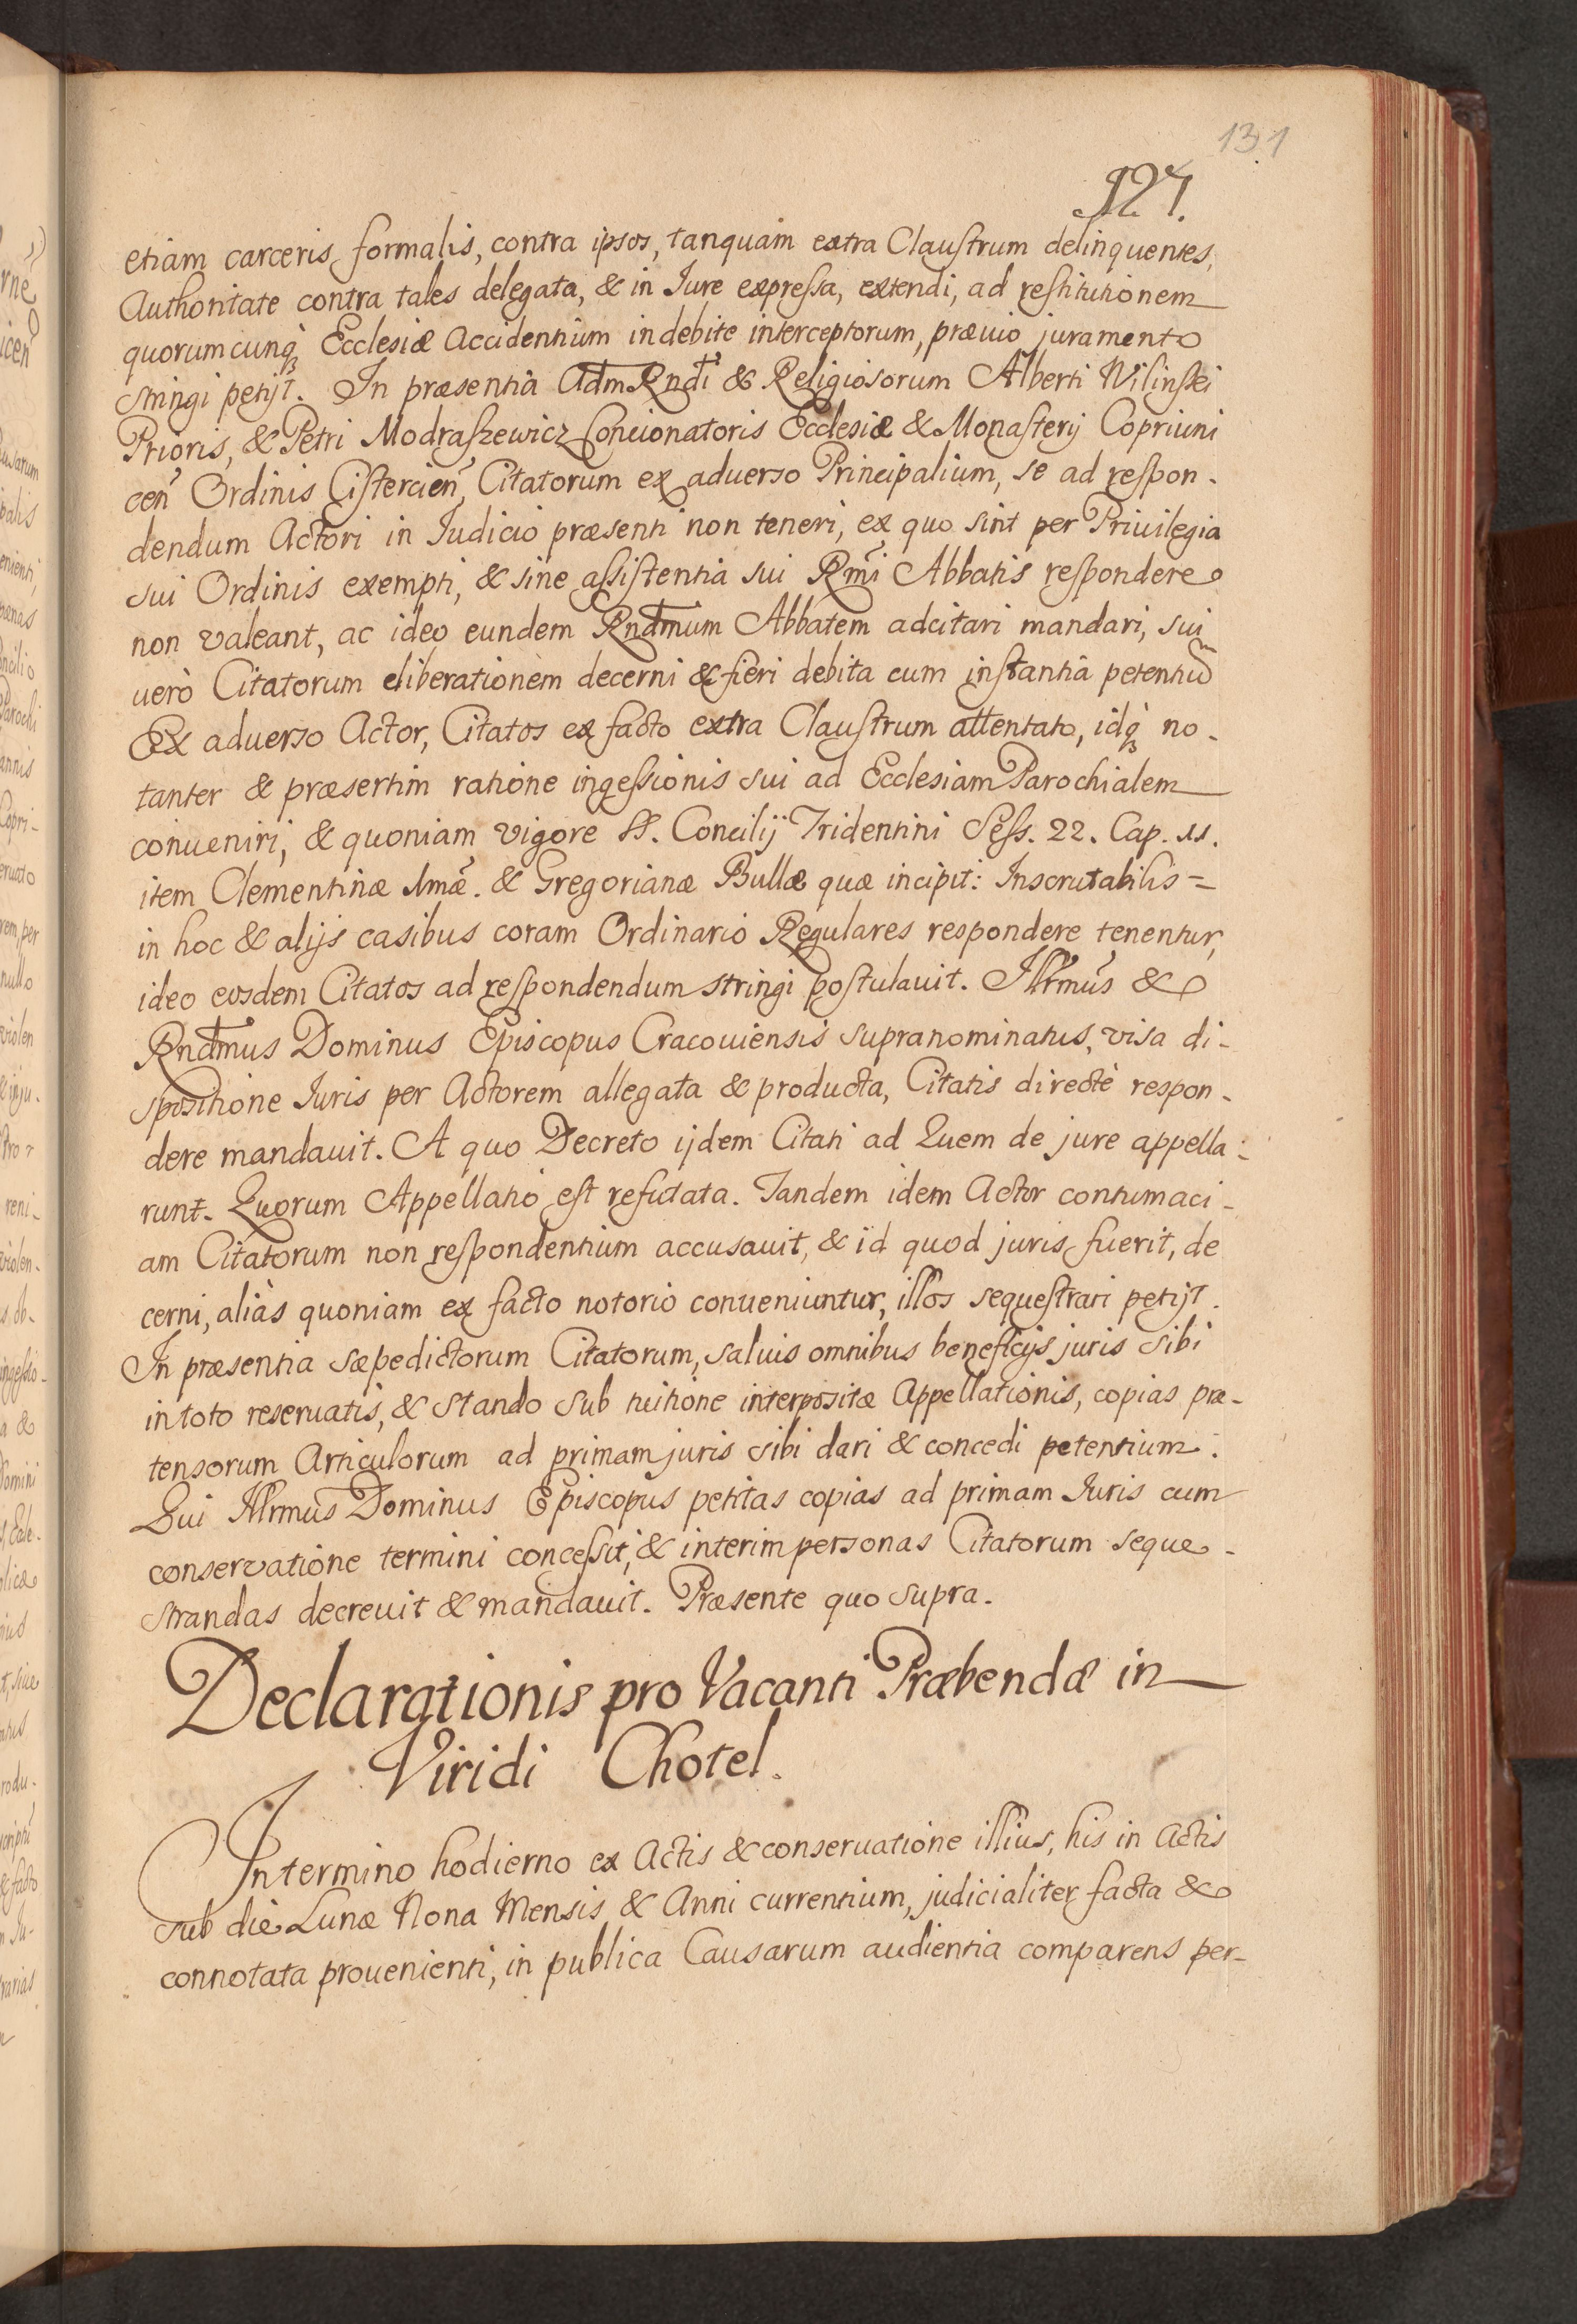 131
127.
etiam carceris formalis, contra ipsos, tanquam extra Claustrum delinquentes,
Authoritate contra tales delegata, & in Jure expressa, extendi, ad restitutionem
quorumcunq̀₃ Ecclesiæ Accidentium indebite interceptorum, præuio juramento
stringi petijt. In præsentia AdmRndi & Religiosorum Alberti Wilinski
Prioris, & Petri Modraszewicz Concionatoris Ecclesiæ & Monasterij Copriuni
cen̄ Ordinis Cistercien̄, Citatorum ex aduerso Principalium, se ad respon-
dendum Actori in Iudicio præsenti non teneri, ex quo sint per Priuilegia
sui Ordinis exempti, & sine assistentia sui Rm̄i Abbatis respondere
non valeant, ac ideo eundem Rndmum Abbatem adcitari mandari, sui
uerò Citatorum eliberationem decerni & fieri debita cum instantia petentiū
Ex aduerso Actor, Citatos ex facto extra Claustrum attentato, idq̀₃ no-
tanter & præsertim ratione ingessionis sui ad Ecclesiam Parochialem
conueniri, & quoniam vigore SS. Concilij Tridentini Sess. 22. Cap. 11.
item Clementinæ Imæ. & Gregorianæ Bullæ quæ incipit: Inscrutabilis=
in hoc & alijs casibus coram Ordinario Regulares respondere tenentur,
ideo eosdem Citatos ad respondendum stringi postulauit. Illrmus &
Rndmus Dominus Episcopus Cracouiensis supranominatus, visa di-
spositione Iuris per Actorem allegata & producta, Citatis directè respon-
dere mandauit. A quo Decreto ijdem Citati ad Quem de jure appella-
runt. Quorum Appellatio est refutata. Tandem idem Actor contumaci-
am Citatorum non respondentium accusauit, & id quod juris fuerit, de
cerni, aliàs quoniam ex facto notorio conueniuntur, illos sequestrari petijt.
In præsentia sæpedictorum Citatorum, saluis omnibus beneficijs juris sibi
in toto reseruatis, & stando sub tuitione interpositæ Appellationis, copias præ-
tensorum Articulorum ad primam juris sibi dari & concedi petentium.
Qui Illrmus Dominus Episcopus petitas copias ad primam Iuris cum
conservatione termini concessit, & interim personas Citatorum seque-
strandas decreuit & mandauit. Præsente quo supra.
Declarationis pro Vacanti Præbendæ in
Viridi Chotel.
In termino hodierno ex Actis & conseruatione illius, his in Actis
sub die Lunæ Nona Mensis & Anni currentium, judicialiter facta &
connotata prouenienti, in publica Causarum audientia comparens per-